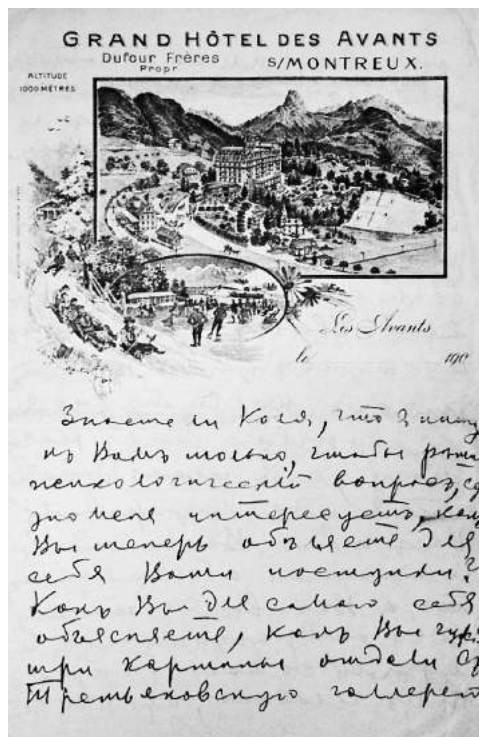 GRAND HÔTEL DES AVANTS
Dufour Frères
Propr
S/MONTREUX.
ALTITUDE
1000 MÈTRES
Les Avants
le 190
Знаете ли Коля, что я пишу
къ Вамъ только, чтобы
психологическій вопросъ,
меня интересуетъ, какъ
Вы теперь объясняете для
себя Ваши поступки?
Какъ Вы для самого себя
объясняете, какъ Вы
три картины отдали
Третьяковскую галлерею